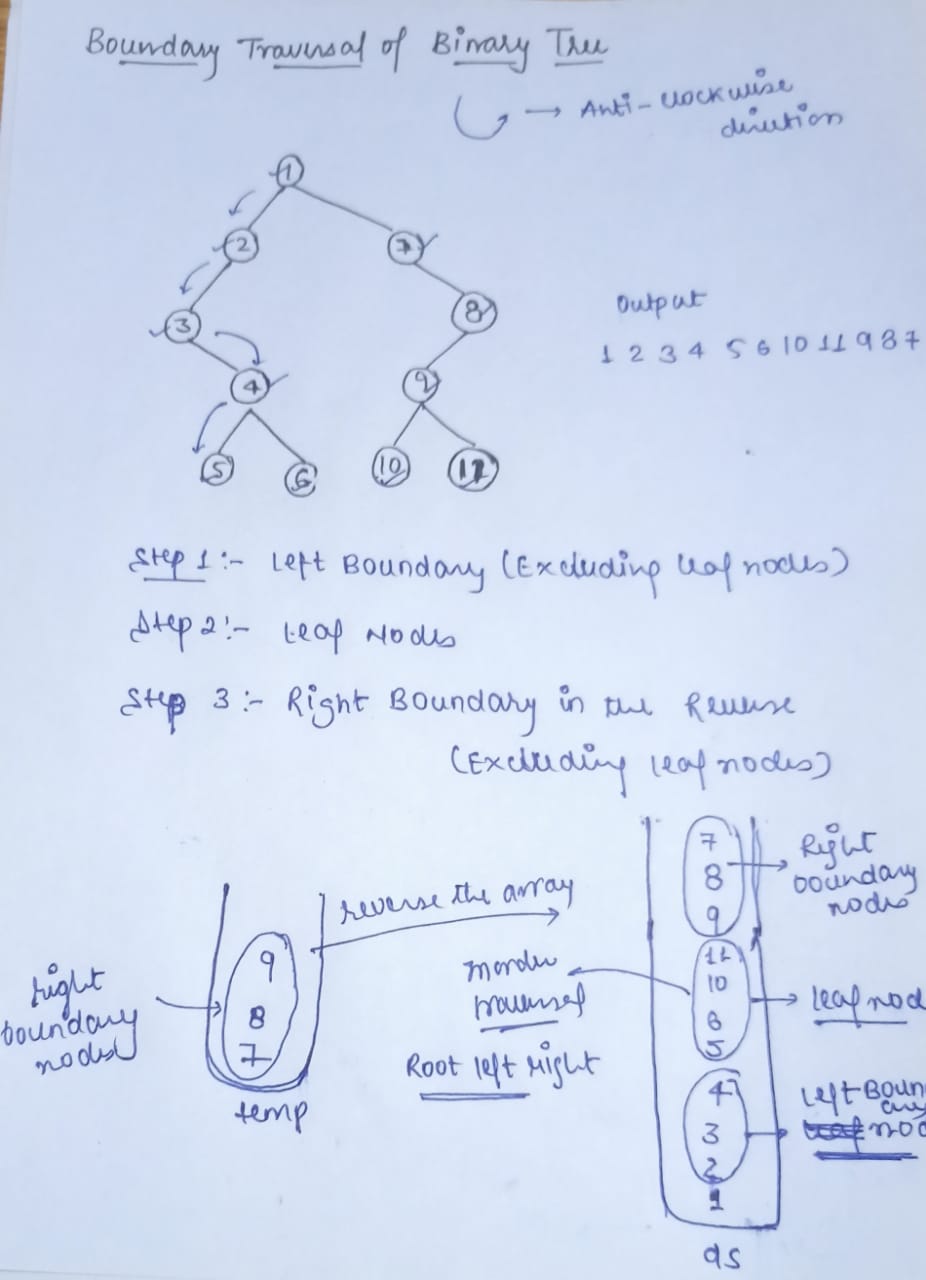 Boundary Traversal of Binary Tree
→ Anti-clockwise
direction
1
2
7
3
8
4
9
5
6
10
11
Output
1 2 3 4 5 6 10 11 9 8 7
Step 1:- Left Boundary (Excluding leaf nodes)
Step 2:- Leaf Nodes
Step 3:- Right Boundary in the Reverse
(Excluding leaf nodes)
right
boundary
nodes
9
8
7
temp
reverse the array
inorder
traversal
Root left right
7
8
9
11
10
6
5
4
3
2
1
ds
Right
boundary
nodes
leaf nod
Left Boun
ary
nod